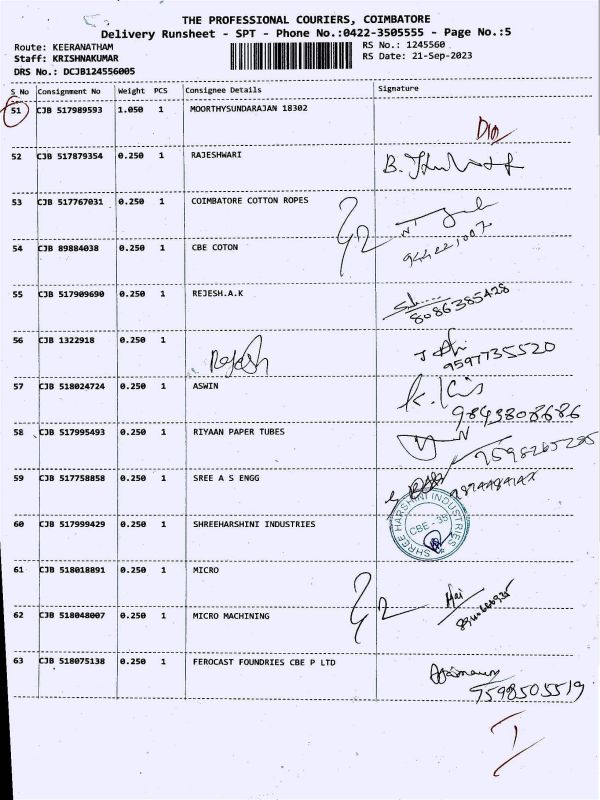 THE PROFESSIONAL COURIERS, COIMBATORE
Delivery Runsheet - SPT - Phone No.:0422-3505555 - Page No.:5
Route: KEERANATHAM RS No.: 1245560
Staff: KRISHNAKUMAR RS Date: 21-Sep-2023
DRS No.: DCJB124556005
S No Consignment No Weight PCS Consignee Details Signature
51 CJB 517989593 1.050 1 MOORTHYSUNDARAJAN 18302
52 CJB 517879354 0.250 1 RAJESHWARI
53 CJB 517767031 0.250 1 COIMBATORE COTTON ROPES
54 CJB 89884038 0.250 1 CBE COTON
55 CJB 517909690 0.250 1 REJESH.A.K
8086385428
56 CJB 1322918 0.250 1
9597735520
57 CJB 518024724 0.250 1 ASWIN
9843808686
58 CJB 517995493 0.250 1 RIYAAN PAPER TUBES
59 CJB 517758858 0.250 1 SREE A S ENGG
60 CJB 517999429 0.250 1 SHREEHARSHINI INDUSTRIES
SHREE HARSHINI INDUSTRIES
CBE - 35
61 CJB 518018891 0.250 1 MICRO
62 CJB 518048007 0.250 1 MICRO MACHINING
63 CJB 518075138 0.250 1 FEROCAST FOUNDRIES CBE P LTD
7598505519